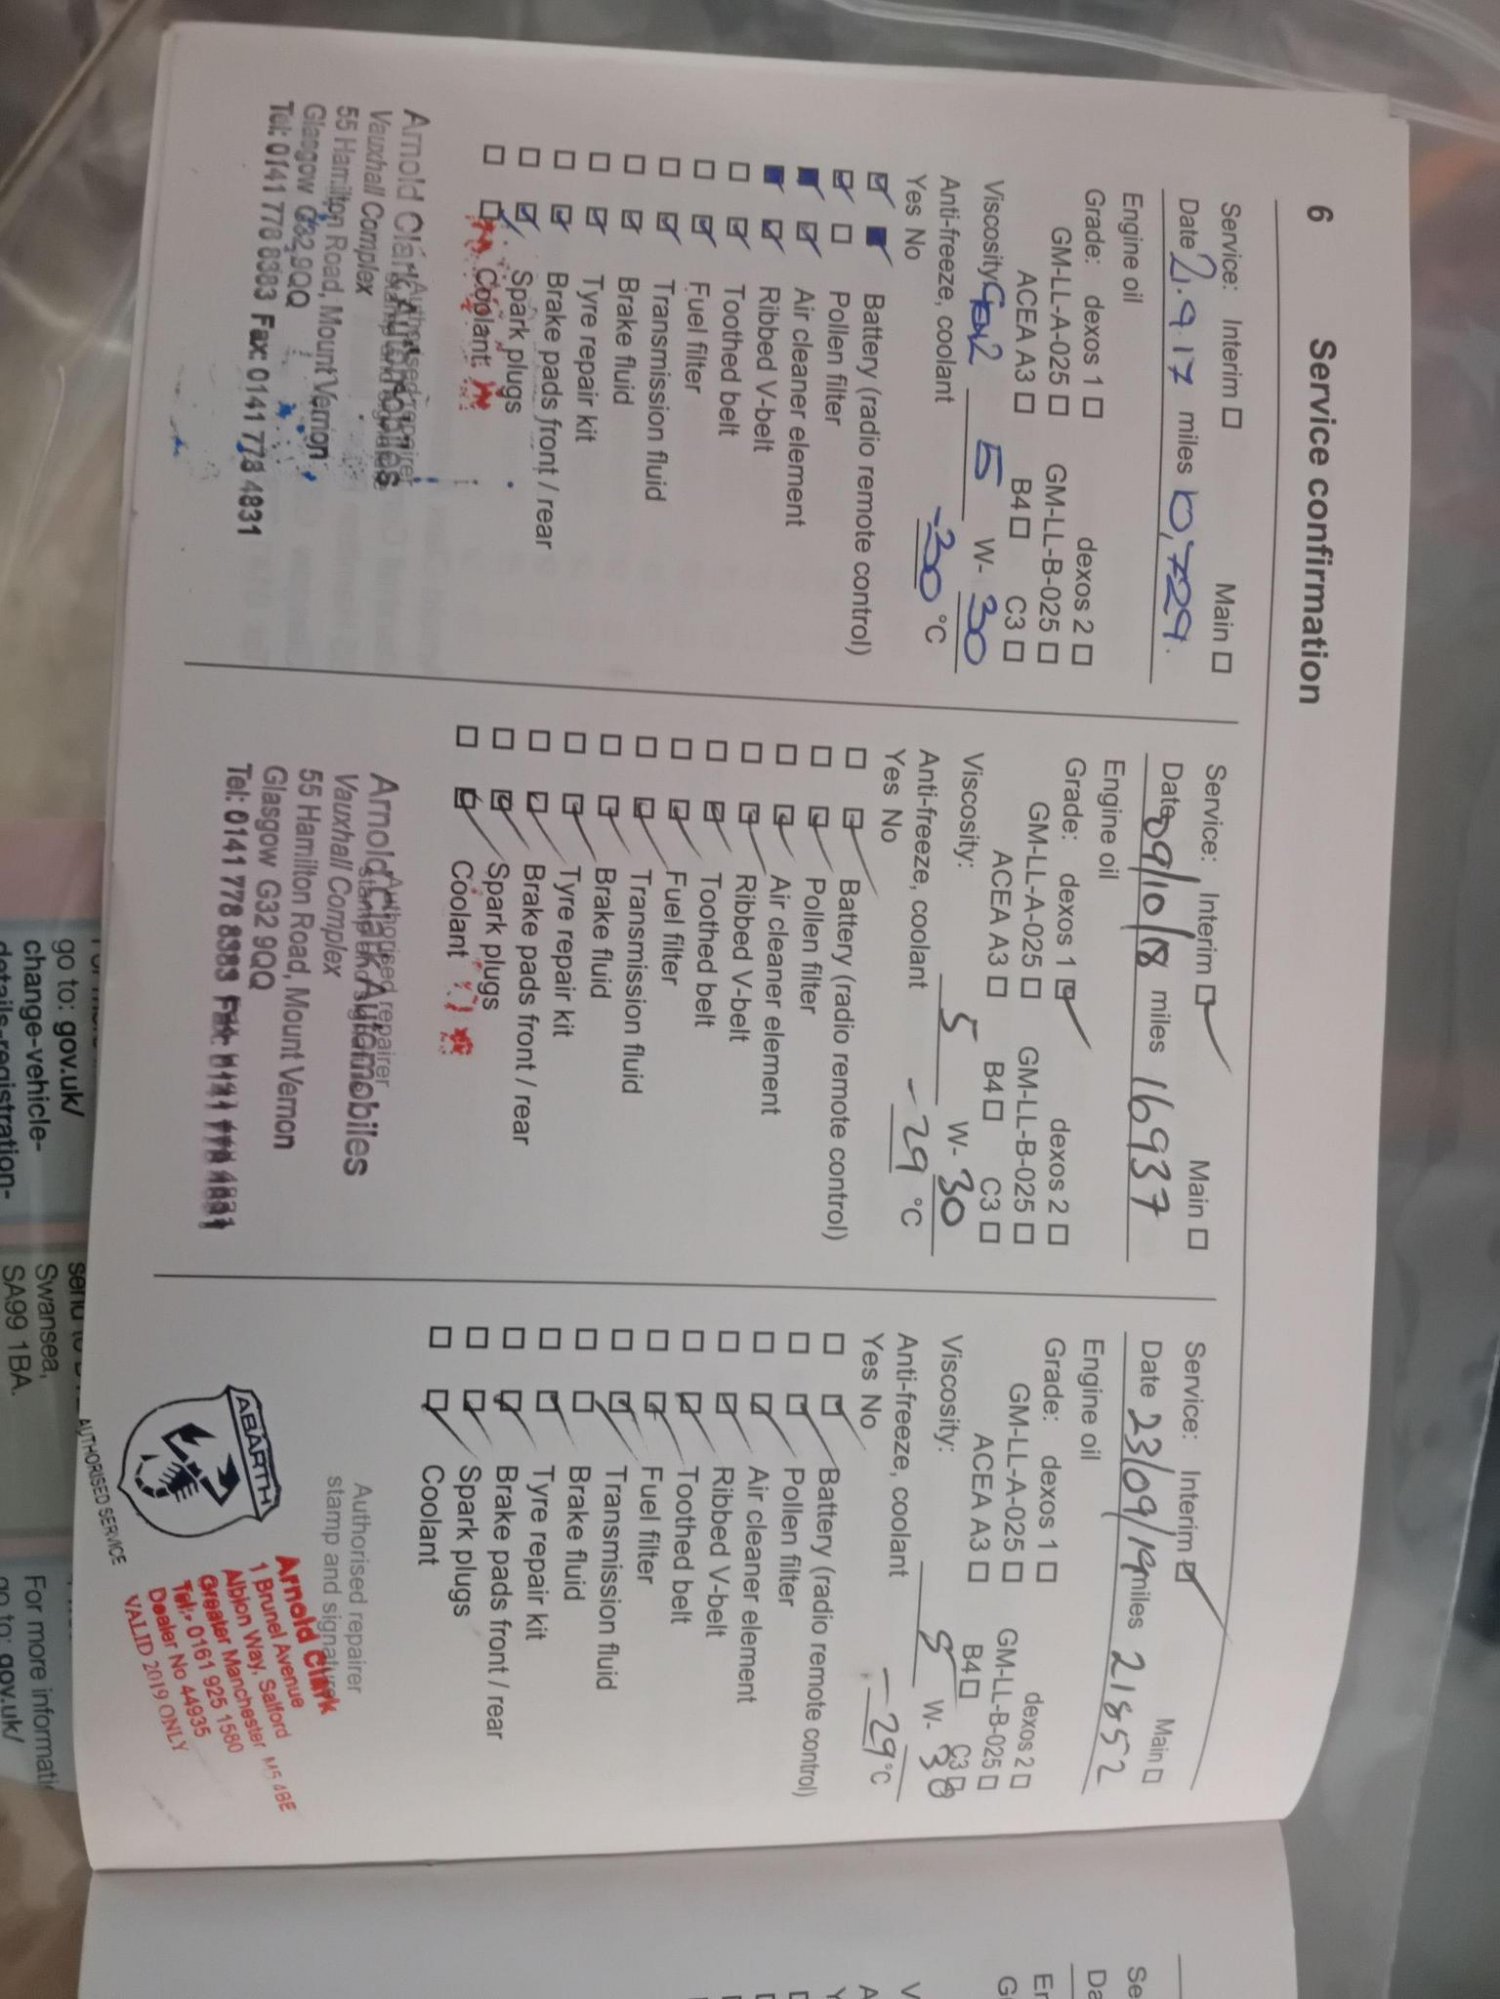 6 Service confirmation
Service: Interim ☐ Main ☐
Date 2.9.17 miles 10,729.
Engine oil
Grade: dexos 1 ☐ dexos 2 ☐
GM-LL-A-025 ☐ GM-LL-B-025 ☐
ACEA A3 ☐ B4 ☐ C3 ☐
Viscosity GEN2 5 W- 30
Anti-freeze, coolant -30 °C
Yes No
Battery (radio remote control)
Pollen filter
Air cleaner element
Ribbed V-belt
Toothed belt
Fuel filter
Transmission fluid
Brake fluid
Tyre repair kit
Brake pads front / rear
Spark plugs
Coolant
Authorised repairer
Arnold Clark
Vauxhall Complex
55 Hamilton Road, Mount Vernon
Glasgow G32 9QQ
Tel: 0141 778 8383 Fax: 0141 773 4831
Service: Interim ☑ Main ☐
Date 09/10/18 miles 16937
Engine oil
Grade: dexos 1 ☑ dexos 2 ☐
GM-LL-A-025 ☐ GM-LL-B-025 ☐
ACEA A3 ☐ B4 ☐ C3 ☐
Viscosity: 5 W- 30
Anti-freeze, coolant -29 °C
Yes No
Battery (radio remote control)
Pollen filter
Air cleaner element
Ribbed V-belt
Toothed belt
Fuel filter
Transmission fluid
Brake fluid
Tyre repair kit
Brake pads front / rear
Spark plugs
Coolant
Authorised repairer
Arnold Clark Automobiles
Vauxhall Complex
55 Hamilton Road, Mount Vernon
Glasgow G32 9QQ
Tel: 0141 778 8383
Service: Interim ☑ Main ☐
Date 23/09/19 miles 21852
Engine oil
Grade: dexos 1 ☐ dexos 2 ☐
GM-LL-A-025 ☐ GM-LL-B-025 ☐
ACEA A3 ☐ B4 ☐ C3 ☐
Viscosity: 5 W- 30
Anti-freeze, coolant -29 °C
Yes No
Battery (radio remote control)
Pollen filter
Air cleaner element
Ribbed V-belt
Toothed belt
Fuel filter
Transmission fluid
Brake fluid
Tyre repair kit
Brake pads front / rear
Spark plugs
Coolant
Authorised repairer
stamp and signature
ABARTH
AUTHORISED SERVICE
Arnold Clark
1 Brunel Avenue
Albion Way, Salford
Greater Manchester M5 4BE
Tel:- 0161 925 1580
Dealer No 44935
VALID 2019 ONLY
go to: gov.uk/
change-vehicle-
details-registration-
Swansea,
SA99 1BA.
For more informati
go to: gov.uk/